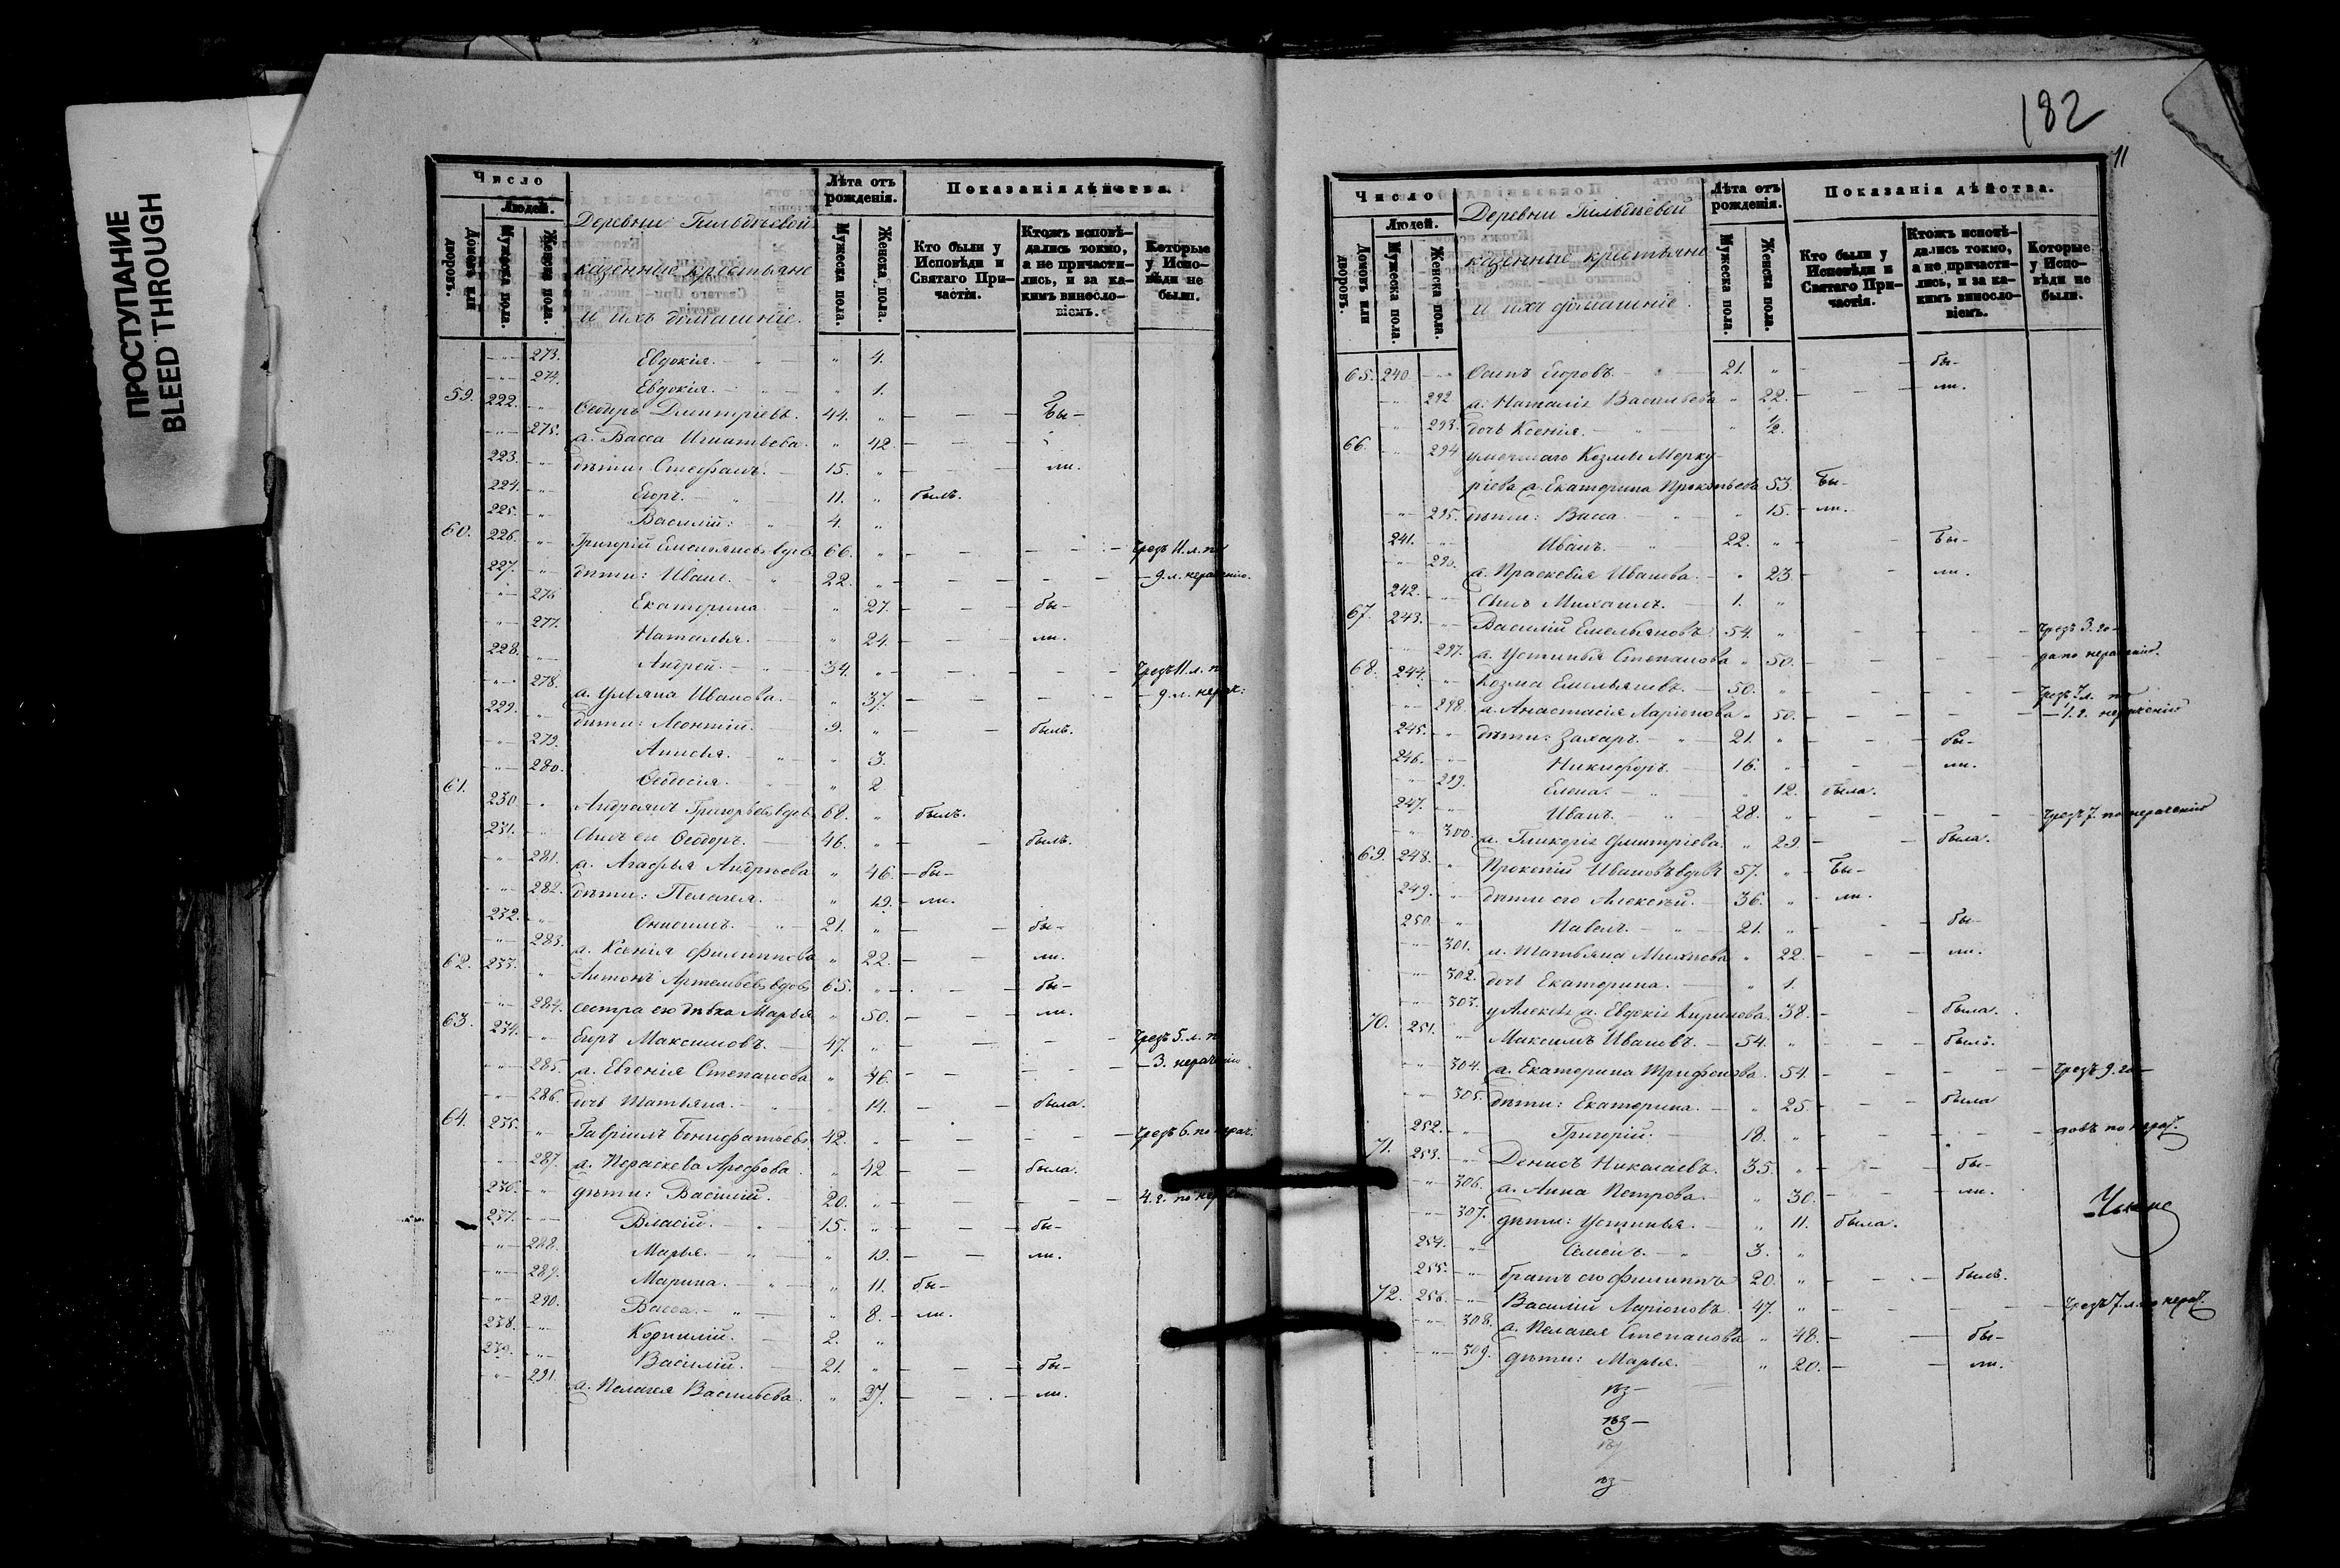 ПРОСТУПАНИЕ
BLEED THROUGH
Число
Людей.
Домовъ или дворовъ.
Мужеска пола.
Женска пола.
Деревни
казенные крестьяне
и ихъ домашніе.
Лѣта отъ рожденія.
Мужеска пола.
Женска пола.
Показанія дѣйства.
Кто были у Исповѣди и Святаго Причастія.
Ктожъ исповѣдались токмо, а не причастились, и за какимъ винословіемъ.
Которые у Исповѣди не были.
273. Евдокія. " 4.
274. Евдокія. " 1.
59. 222. Ѳеодоръ Дмитріевъ. 44. " Бы-
275. а. Васса Игнатьева. " 42.
223. дѣти: Стефанъ. 15. " ли.
224. Егоръ. 11. " былъ.
225. Василій: 4. "
60. 226. Григорій Емельяновъ вдовъ 66. " чрезъ 11. л. по
227. дѣти: Иванъ. 22. " 9. л. нераченію.
276 Екатерина " 27. бы-
277. Наталья. " 24. ли.
228. Андрей. 34. " чрезъ 11. л. п
278. а. Ульяна Иванова. " 37. 9. л. нерач:
229. дѣти: Леонтій. 9. " былъ.
279. Анисья. " 3.
280. Ѳеодосія. " 2
61. 230. Андреянъ Григорьевъ вдовъ 68. " былъ.
231. Сынъ его Ѳеодоръ. 46. " былъ.
281. а. Агафья Андреева " 46. бы-
282. дѣти: Пелагея. " 19. ли.
232. Онисимъ. 21. " бы-
283. а. Ксенія Филиппова " 22. ли.
62. 233. Антонъ Артемьевъ вдовъ 65. " бы-
284. сестра его дѣвка Марья " 50. ли.
63. 234. Егоръ Максимовъ. 47. " чрезъ 5. л. п
285. а. Евгенія Степанова " 46. 3. нераченію
286. дочь Татьяна. " 14. была.
64. 235. Гавріилъ Бонифатьевъ 42. " чрезъ 6. по нерач:
287. а. Параскева Арефова. " 42 была.
236. дѣти: Василій. 20. " 4. г. по нерач
237. Власій. 15. " бы-
288. Марья. " 19. ли.
289. Марина. " 11. бы-
290. Васса. " 8. ли.
238. Корнилій. 2. "
239. Василій. 21. " бы-
291. а. Пелагея Васильева. " 27. ли.
182
11
Число
Людей.
Домовъ или дворовъ.
Мужеска пола.
Женска пола.
Деревни
казенные крестьяне
и ихъ домашніе.
Лѣта отъ рожденія.
Мужеска пола.
Женска пола.
Показанія дѣйства.
Кто были у Исповѣди и Святаго Причастія.
Ктожъ исповѣдались токмо, а не причастились, и за какимъ винословіемъ.
Которые у Исповѣди не были.
65. 240. Осипъ Егоровъ. 21. " бы-
292 а. Наталія Васильева " 22. ли.
293. дочь Ксенія. " 1/2.
66. 294 умершаго Козмы Мерку-
ріева а. Екатерина Прокопьева 53. Бы-
295. дѣти: Васса " 15. ли.
241. Иванъ. 22. " Бы-
296. а. Праскевія Иванова. " 23. ли.
242. Сынъ Михаилъ. 1. "
67. 243. Василій Емельяновъ. 54. " чрезъ 3. го-
297. а. Устинья Степанова " 50. да по нераченію.
68. 244. Козма Емельяновъ. 50. " чрезъ 7. л. по
298. а. Анастасія Ларіонова " 50. 1. г. нераченію
245. дѣти: Захаръ. 21. " бы-
246. Никифоръ. 16. " ли.
299. Елена. " 12. была.
247. Иванъ. 28. " чрезъ 7. по нераченію
300. а. Гликерія Дмитріева. " 29. была.
69. 248. Прокопій Ивановъ вдовъ 57. " Бы-
249. дѣти его Алексѣй. 36. " ли.
250. Павелъ. 21. " бы-
301. а. Татьяна Михѣева " 22. ли.
302. дочь Екатерина. " 1.
303. у Алексѣя а. Евдокія Кирилова. 38. была.
70. 251. Максимъ Ивановъ. 54. " былъ.
304. а. Екатерина Трифонова. 54. чрезъ 9. го-
305. дѣти: Екатерина. " 25. была
252. Григорій. 18. " довъ по нерач.
71. 253. Денисъ Николаевъ. 35. " бы-
306. а. Анна Петрова. " 30. ли.
307. дѣти: Устинья. " 11. была.
254. Семенъ. 3. "
255. братъ его Филиппъ 20. " былъ.
72. 256. Василій Ларіоновъ. 47. " чрезъ 7. л. по нерач.
308. а. Пелагея Степанова " 48. бы-
309. дѣти: Марья. " 20. ли.